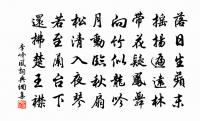 落日生蘋末
搖揚遍遠林
帶花疑鳳舞
向竹似龍吟
月動臨秋扇
松清入夜琴
若至蘭台下
還拂楚王襟
李嶠風詞典網集